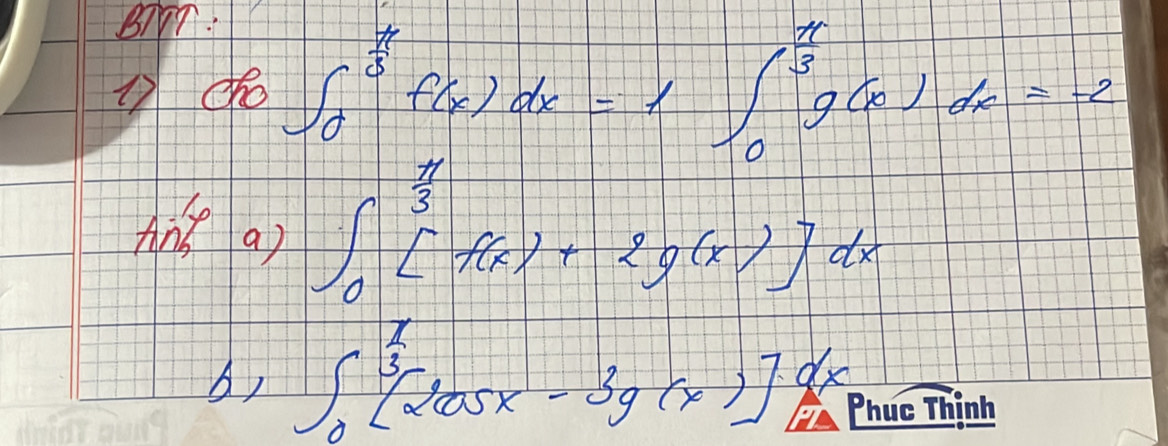 BTTT:
1) Cho ∫₀^{π/3} f(x) dx = 1 ∫₀^{π/3} g(x) dx = -2
tính a) ∫₀^{π/3} [f(x) + 2g(x)] dx
b) ∫₀^{π/3} [2cosx - 3g(x)] dx
PT Phuc Thịnh